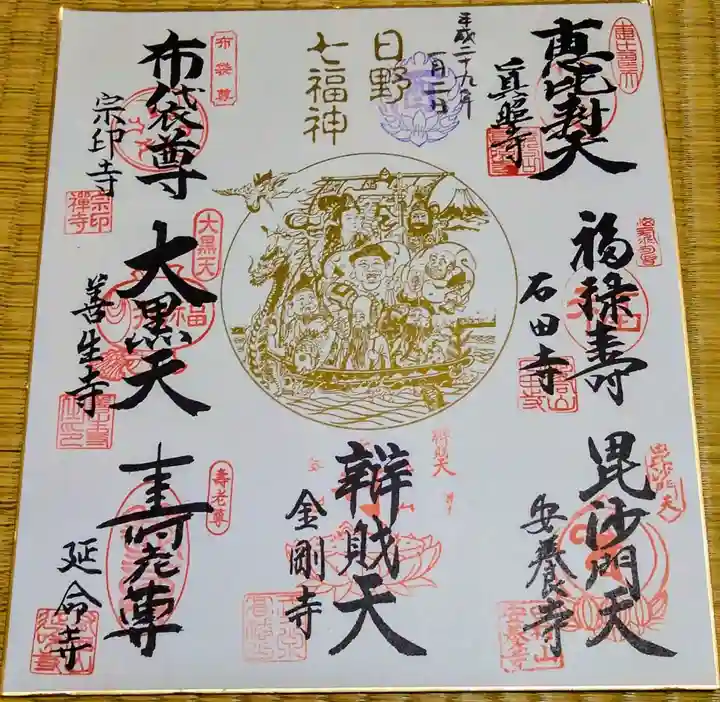 恵比寿天
真照寺
福禄寿
石田寺
毘沙門天
安養寺
平成二十九年
一月二日
日野
七福神
辯財天
金剛寺
布袋尊
布袋尊
宗印寺
宗印
禅寺
大黒天
大黒天
善生寺
壽老尊
壽老尊
延命寺